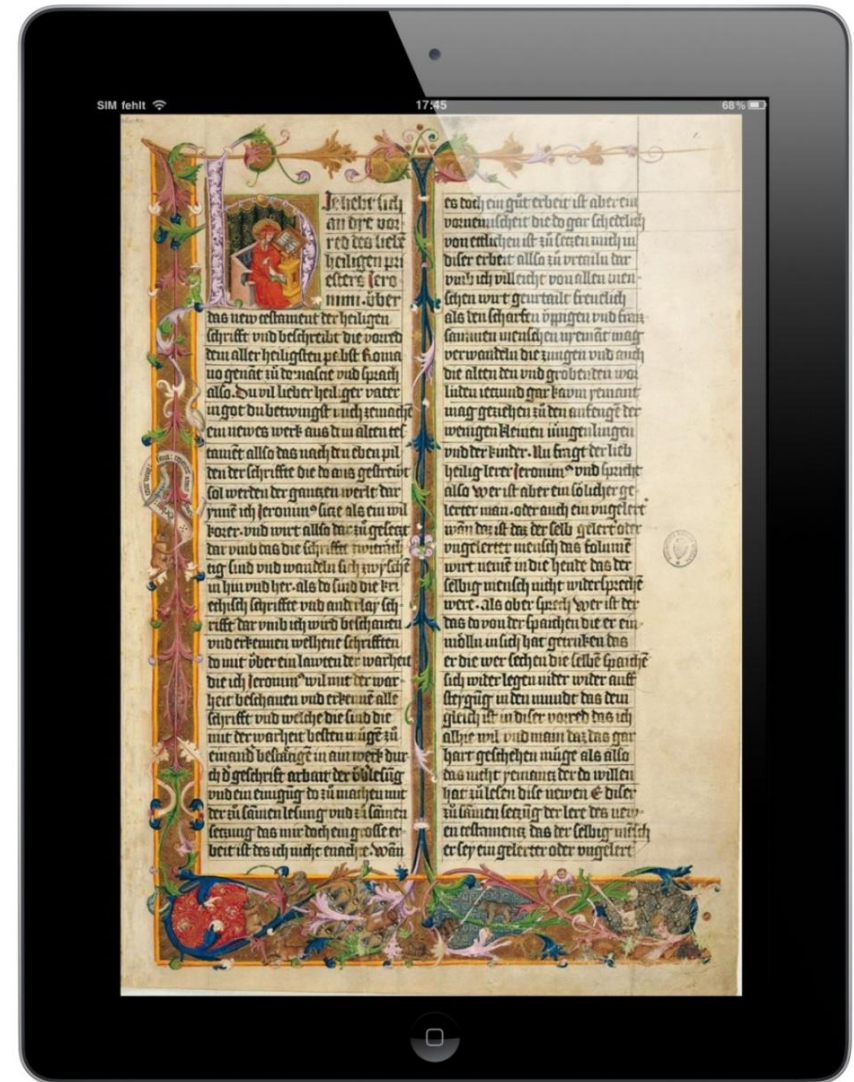 SIM fehlt
17:45
68%
Je hebt sich
an dye vor-
red des liebē
heiligen pri
esters Jero
nimi. über
das new testament der heiligen
schrifft vnd beschreibt die vorred
dem aller heiligsten pabst Roma
genāt zů vnd sprach
also. Du vil lieber heiliger vater
in got du betwingst mich zemachē
ein newes werk aus dem alten tes
tamēt allso das nach den eben pil
den der schriffte die do aus gestrewt
sol werden der gantzen werlt dar
ynnē ich Jeronimꝰ sitze als ein wil
korer. vnd wirt allso dar zů gesetzt
dar vmb das die schrifft zwiträch
tig sind vnd wandeln sich zwyschē
in hin vnd her. als do sind die kri
echisch schriffte vnd anderlay sch-
rifft dar vmb ich wird beschauen
vnd erkennen welhene schrifften
do mit über ein lawten der warheit
die ich Jeronimꝰ wil mit der war-
heit beschauen vnd erkennē alle
schrifft vnd welche die sind die
mit der warheit besten mügē zů
einand bestätigē in ain werk dur-
ch d̄ geschrift arbait der
vnd ein einigūg do zů machen mit
der zů sāmen lesung vnd zů sāmen
setzung das mir doch ein grosse er-
beit ist des ich nicht enachte. Wan
es doch ein gůt erbeit ist aber ein
vornemischeit die do gar schedelich
von ettlichen ist zů setzen mich in
diser erbeit allso zů vrtailn dar
vmb ich villeicht von allen men-
schen wirt geurtailt freuelich
als den scharfen üppigen vnd
menschen nyemāt mag
verwandeln die zungen vnd auch
die alten den vnd grobenden wor
linden ietzund gar kawm yemant
mag geziehen zů den anfengē der
wenigen kleinen iüngenlingen
vnd der kinder. Nu fragt der lieb
heilig lerer Jeronimꝰ vnd spricht
also wer ist aber ein sölicher ge
lerter man. oder auch ein vngelert
wān daz ist daz der selb gelert oder
vngelerter mensch das folumē
wirt nemē in die hende das der
selbig mensch nicht widersprechē
were. als ober sprech wer ist der
das do von der spaichen die er ein-
mölln in sich hat getruken das
er die wer sechen die selbē spaichē
sich wider legen wider auff
steygūg in den mundt das dem
gleich ist in diser vorred das ich
allhie wil vnd main daz das gar
hart geschehen müge als also
das nicht yemantz der do willen
hat zů lesen dise newen E diser
zů sāmen setzūg der lere des new-
en testamentz das der selbig mēsch
er sey ein gelerter oder vngelert